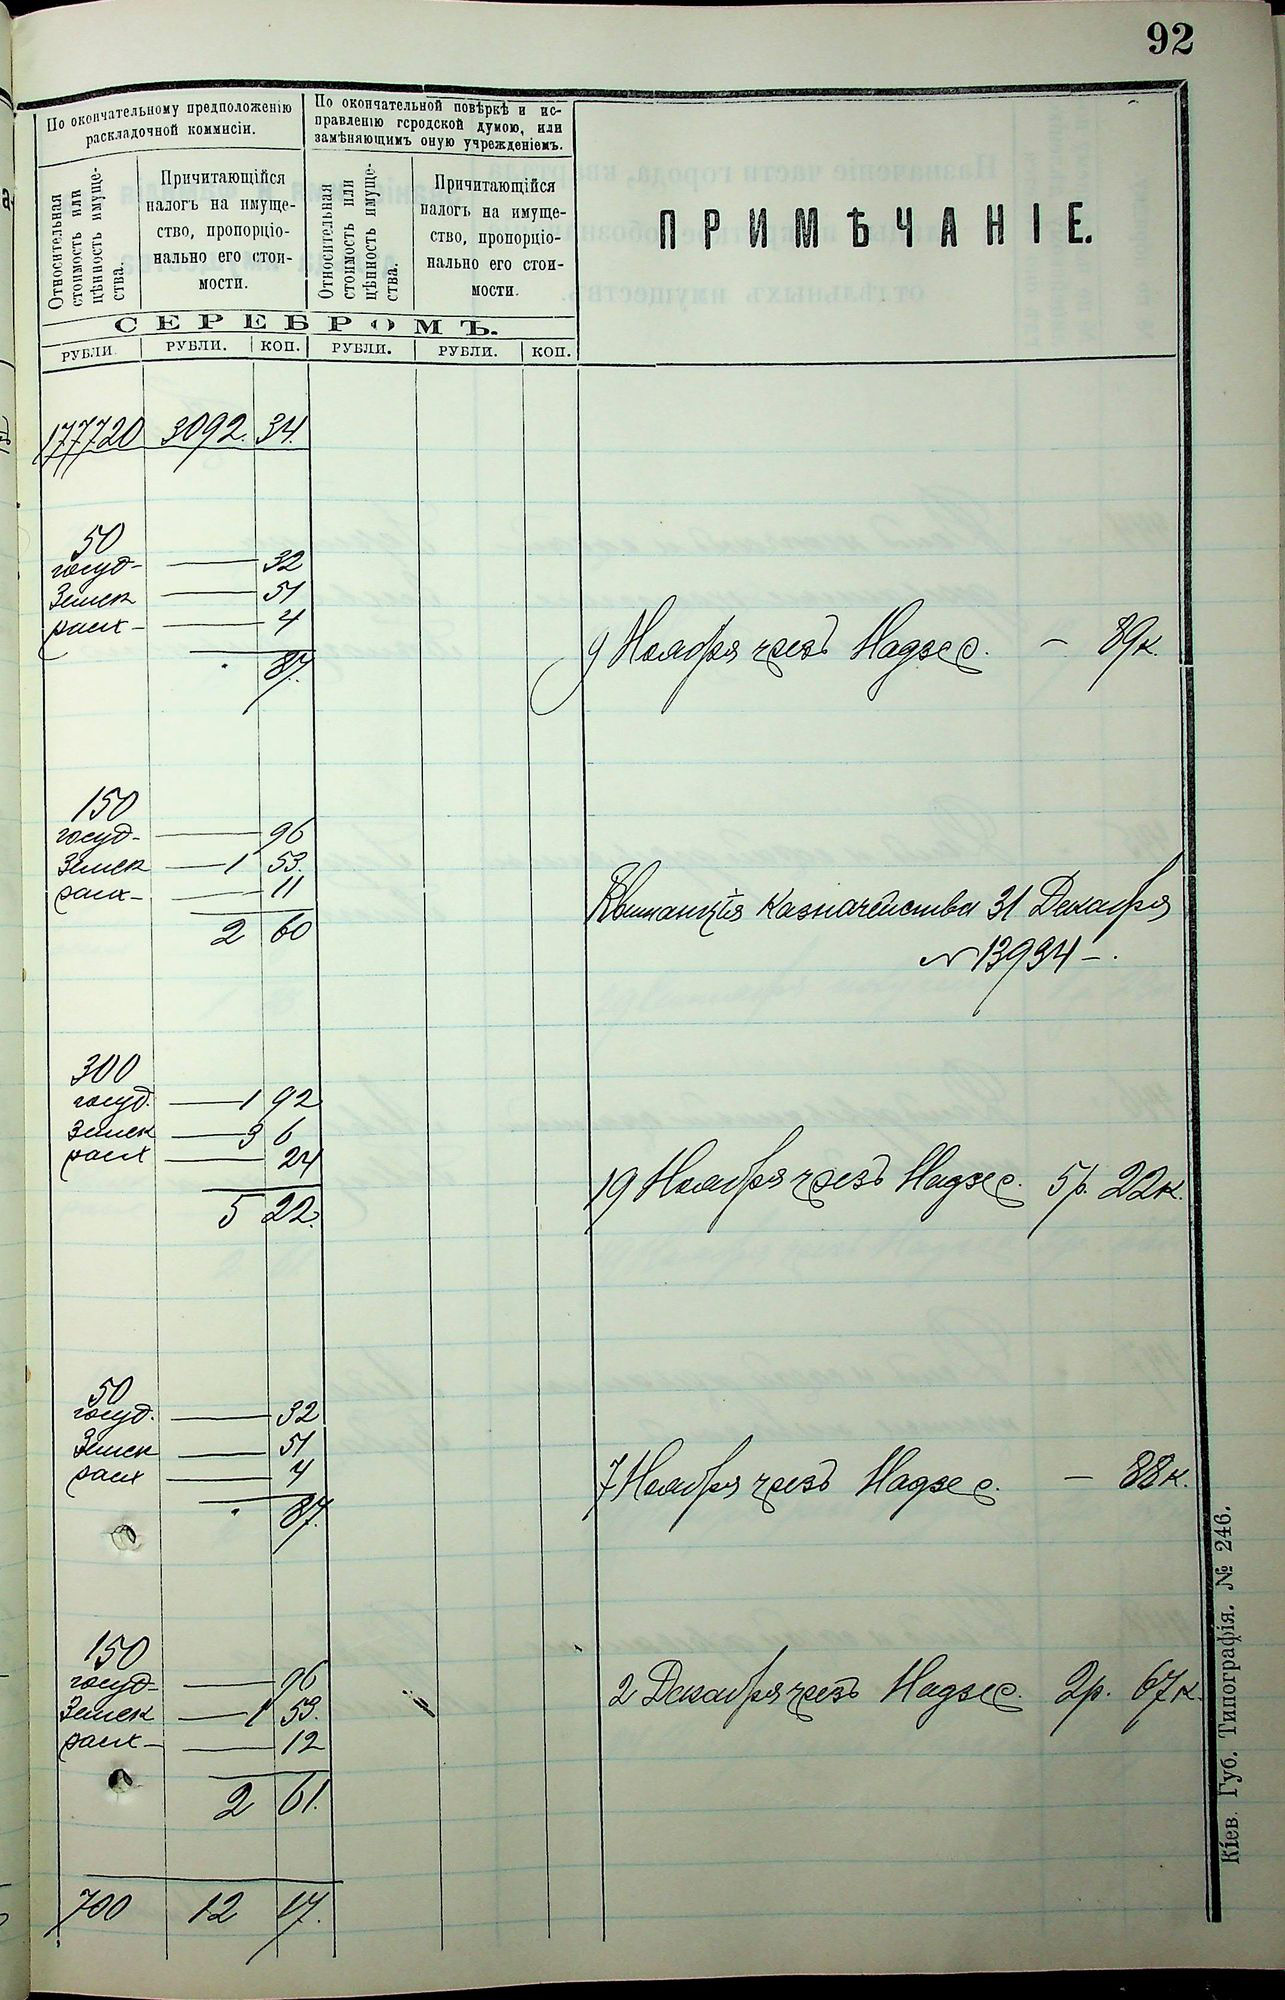 92
По окончательному предположенію
раскладочной коммисіи.
По окончательной повѣркѣ и ис-
правленію городской думою, или
замѣняющимъ оную учрежденіемъ.
Относительная
стоимость или
цѣнность имуще-
ства.
Причитающійся
налогъ на имуще-
ство, пропорціо-
нально его стои-
мости.
Относительная
стоимость или
цѣнность имуще-
ства.
Причитающійся
налогъ на имуще-
ство, пропорціо-
нально его стои-
мости.
ПРИМѢЧАНІЕ.
СЕРЕБРОМЪ.
РУБЛИ. РУБЛИ. КОП. РУБЛИ. РУБЛИ. КОП.
177720 3092. 34.
50
госуд- — 32
Земск — 51
расх- — 4
87.
9 Ноября чрезъ Надзес. — 89к.
150
госуд- — 96
Земск — 1 53.
расх- — 11
2 60
Квитанція Казначейства 31 Декабря
№ 13934 —.
300
госуд. — 1 92
Земск — 3 6
расх — 24
5 22.
19 Ноября чрезъ Надзес. 5р. 22к.
50
госуд. — 32
Земск — 51
расх — 4
87.
7 Ноября чрезъ Надзес. — 88к.
150
госуд- — 96
Земск — 1 53.
расх- — 12
2 61.
2 Декабря чрезъ Надзес. 2р. 67к.
700 12 17.
Кіев. Губ. Типографія. № 246.